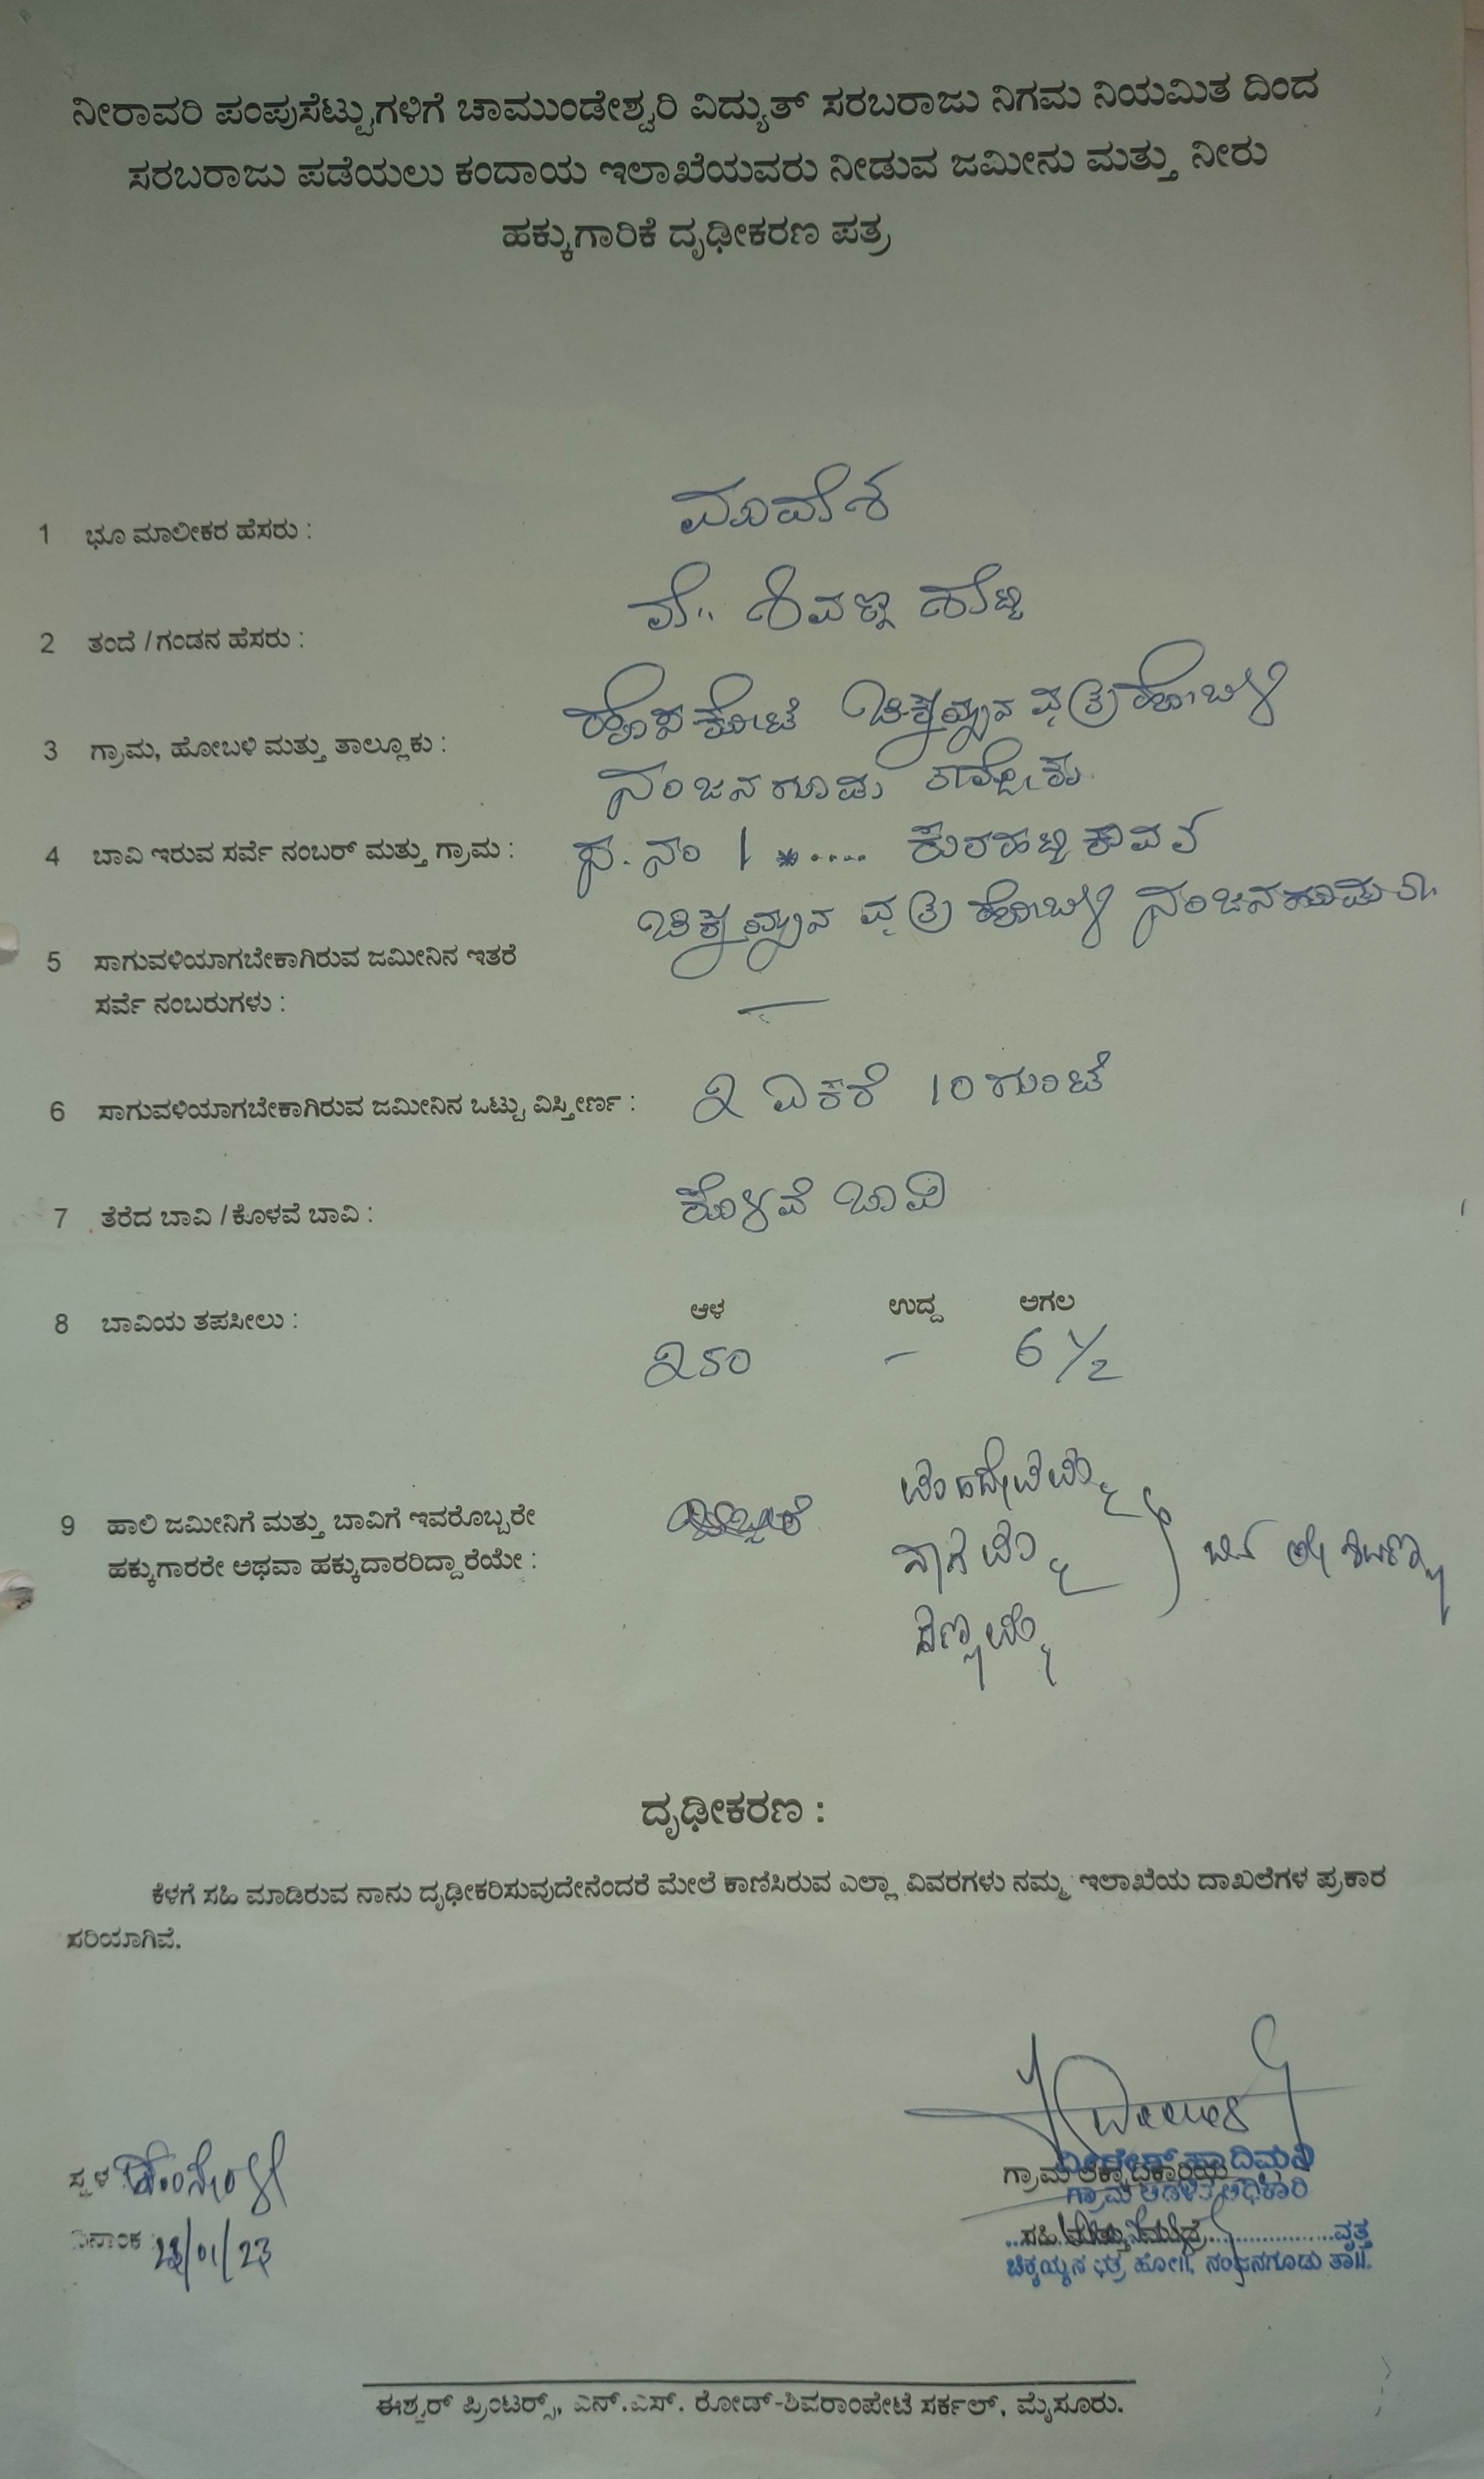 ನೀರಾವರಿ ಪಂಪುಸೆಟ್ಟುಗಳಿಗೆ ಚಾಮುಂಡೇಶ್ವರಿ ವಿದ್ಯುತ್ ಸರಬರಾಜು ನಿಗಮ ನಿಯಮಿತ ದಿಂದ
ಸರಬರಾಜು ಪಡೆಯಲು ಕಂದಾಯ ಇಲಾಖೆಯವರು ನೀಡುವ ಜಮೀನು ಮತ್ತು ನೀರು
ಹಕ್ಕುಗಾರಿಕೆ ದೃಢೀಕರಣ ಪತ್ರ
1 ಭೂ ಮಾಲೀಕರ ಹೆಸರು :
2 ತಂದೆ / ಗಂಡನ ಹೆಸರು : ಶಿವಣ್ಣ ಶೆಟ್ಟಿ
3 ಗ್ರಾಮ, ಹೋಬಳಿ ಮತ್ತು ತಾಲ್ಲೂಕು : ಹೊಸಕೋಟೆ ಚಿಕ್ಕಯ್ಯನ ಛತ್ರ ಹೋಬಳಿ
ನಂಜನಗೂಡು ತಾಲ್ಲೂಕು
4 ಬಾವಿ ಇರುವ ಸರ್ವೆ ನಂಬರ್ ಮತ್ತು ಗ್ರಾಮ : ಸ. ನಂ 1
ಚಿಕ್ಕಯ್ಯನ ಛತ್ರ ಹೋಬಳಿ ನಂಜನಗೂಡು ತಾ.
5 ಸಾಗುವಳಿಯಾಗಬೇಕಾಗಿರುವ ಜಮೀನಿನ ಇತರೆ
ಸರ್ವೆ ನಂಬರುಗಳು : —
6 ಸಾಗುವಳಿಯಾಗಬೇಕಾಗಿರುವ ಜಮೀನಿನ ಒಟ್ಟು ವಿಸ್ತೀರ್ಣ : 2 ಎಕರೆ 10 ಗುಂಟೆ
7 ತೆರೆದ ಬಾವಿ / ಕೊಳವೆ ಬಾವಿ : ಕೊಳವೆ ಬಾವಿ
8 ಬಾವಿಯ ತಪಸೀಲು : ಆಳ ಉದ್ದ ಅಗಲ
250 - 6 1/2
9 ಹಾಲಿ ಜಮೀನಿಗೆ ಮತ್ತು ಬಾವಿಗೆ ಇವರೊಬ್ಬರೇ
ಹಕ್ಕುಗಾರರೇ ಅಥವಾ ಹಕ್ಕುದಾರರಿದ್ದಾರೆಯೇ :
ಮಹದೇವಮ್ಮ
ನಾಗಮ್ಮ
ಚಿಣ್ಣಮ್ಮ
ದೃಢೀಕರಣ :
ಕೆಳಗೆ ಸಹಿ ಮಾಡಿರುವ ನಾನು ದೃಢೀಕರಿಸುವುದೇನೆಂದರೆ ಮೇಲೆ ಕಾಣಿಸಿರುವ ಎಲ್ಲಾ ವಿವರಗಳು ನಮ್ಮ ಇಲಾಖೆಯ ದಾಖಲೆಗಳ ಪ್ರಕಾರ
ಸರಿಯಾಗಿವೆ.
ಸ್ಥಳ
ದಿನಾಂಕ : 23/01/23
ಗ್ರಾಮ ಲೆಕ್ಕಾಧಿಕಾರಿಯ
ಗ್ರಾಮ ಆಡಳಿತ ಅಧಿಕಾರಿ
ಸಹಿ ಮತ್ತು ಮೊಹರು ವೃತ್ತ
ಚಿಕ್ಕಯ್ಯನ ಛತ್ರ ಹೋ||, ನಂಜನಗೂಡು ತಾ||.
ಈಶ್ವರ್ ಪ್ರಿಂಟರ್ಸ್, ಎನ್.ಎಸ್. ರೋಡ್-ಶಿವರಾಂಪೇಟೆ ಸರ್ಕಲ್, ಮೈಸೂರು.